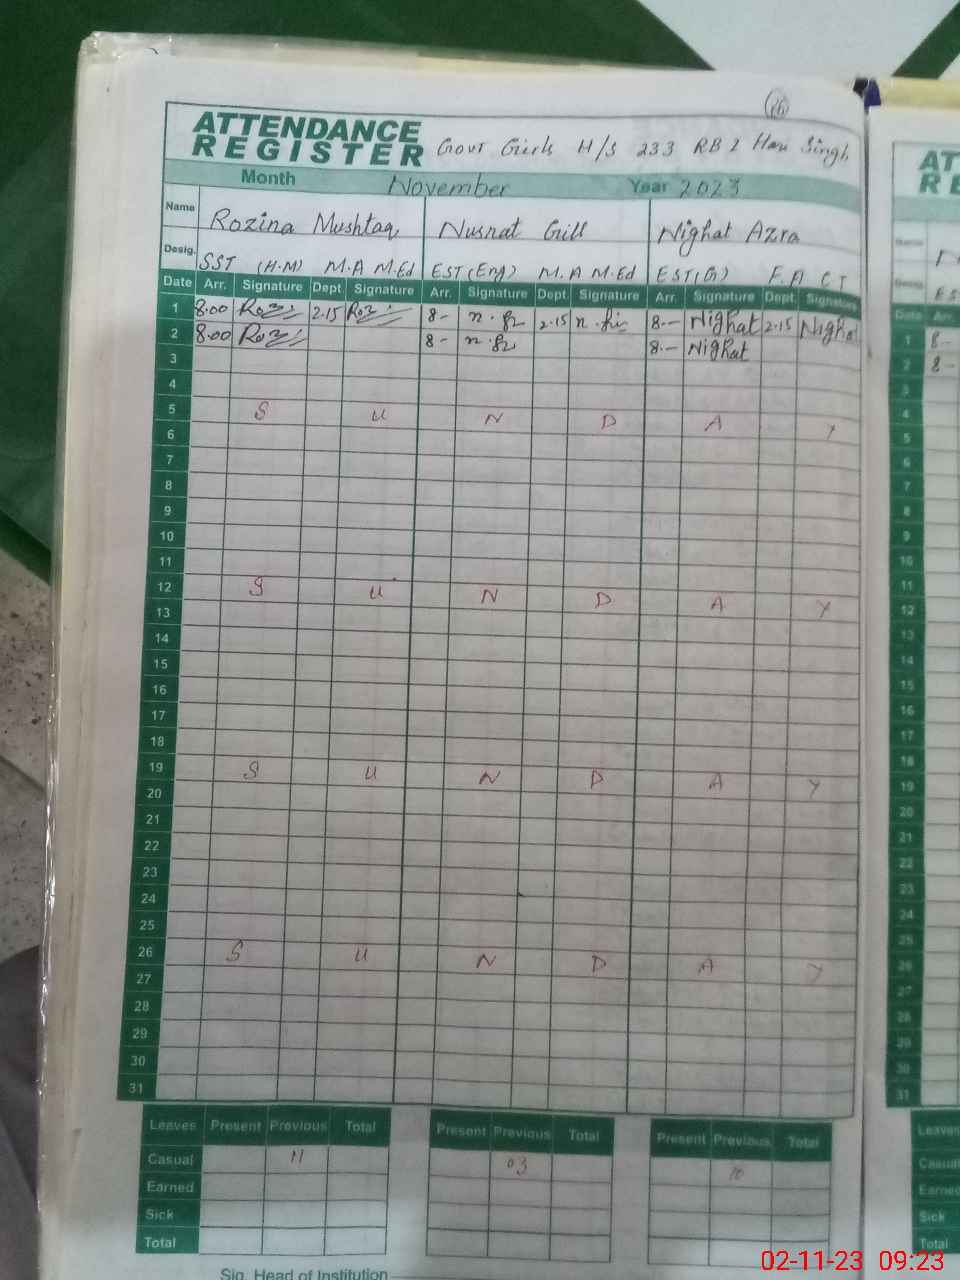 26
ATTENDANCE
REGISTER Govt Girls H/S 233 RB 2 Hari Singh
Month November Year 2023
Name Rozina Mushtaq Nusrat Gill Nighat Azra
Desig. SST (H.M) M.A M.Ed EST (Eng) M.A M.Ed EST (G) F.A CT
Date Arr. Signature Dept. Signature Arr. Signature Dept. Signature Arr. Signature Dept. Signature
1 8.00 2.15 8- 2.15 8.- Nighat 2.15 Nighat
2 8.00 8- 8.- Nighat
3
4
5 S U N D A Y
6
7
8
9
10
11
12 S U N D A Y
13
14
15
16
17
18
19 S U N D A Y
20
21
22
23
24
25
26 S U N D A Y
27
28
29
30
31
Leaves Present Previous Total Present Previous Total Present Previous Total
Casual 11 03 10
Earned
Sick
Total
Sig. Head of Institution
AT
RE
Date Arr
1 8-
2 8-
3
4
5
6
7
8
9
10
11
12
13
14
15
16
17
18
19
20
21
22
23
24
25
26
27
28
29
30
31
Leaves
Casual
Earned
Sick
Total
02-11-23 09:23